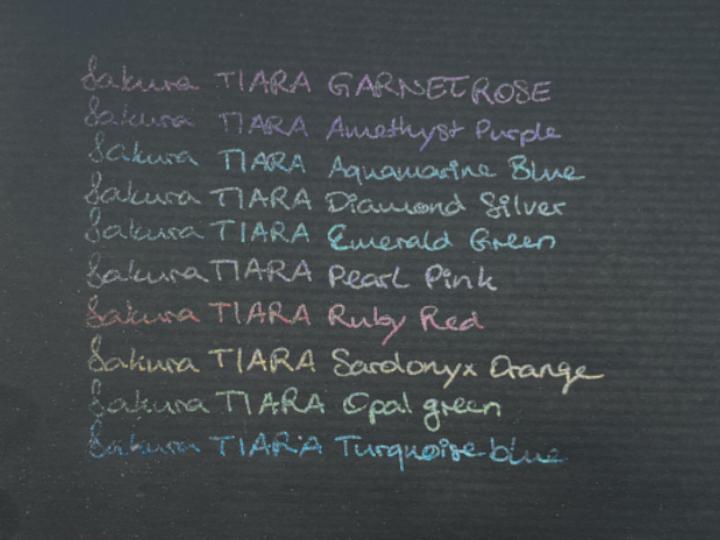 Sakura TIARA GARNET ROSE
Sakura TIARA Amethyst Purple
Sakura TIARA Aquamarine Blue
Sakura TIARA Diamond Silver
Sakura TIARA Emerald Green
Sakura TIARA Pearl Pink
Sakura TIARA Ruby Red
Sakura TIARA Sardonyx Orange
Sakura TIARA Opal green
Sakura TIARA Turquoise blue